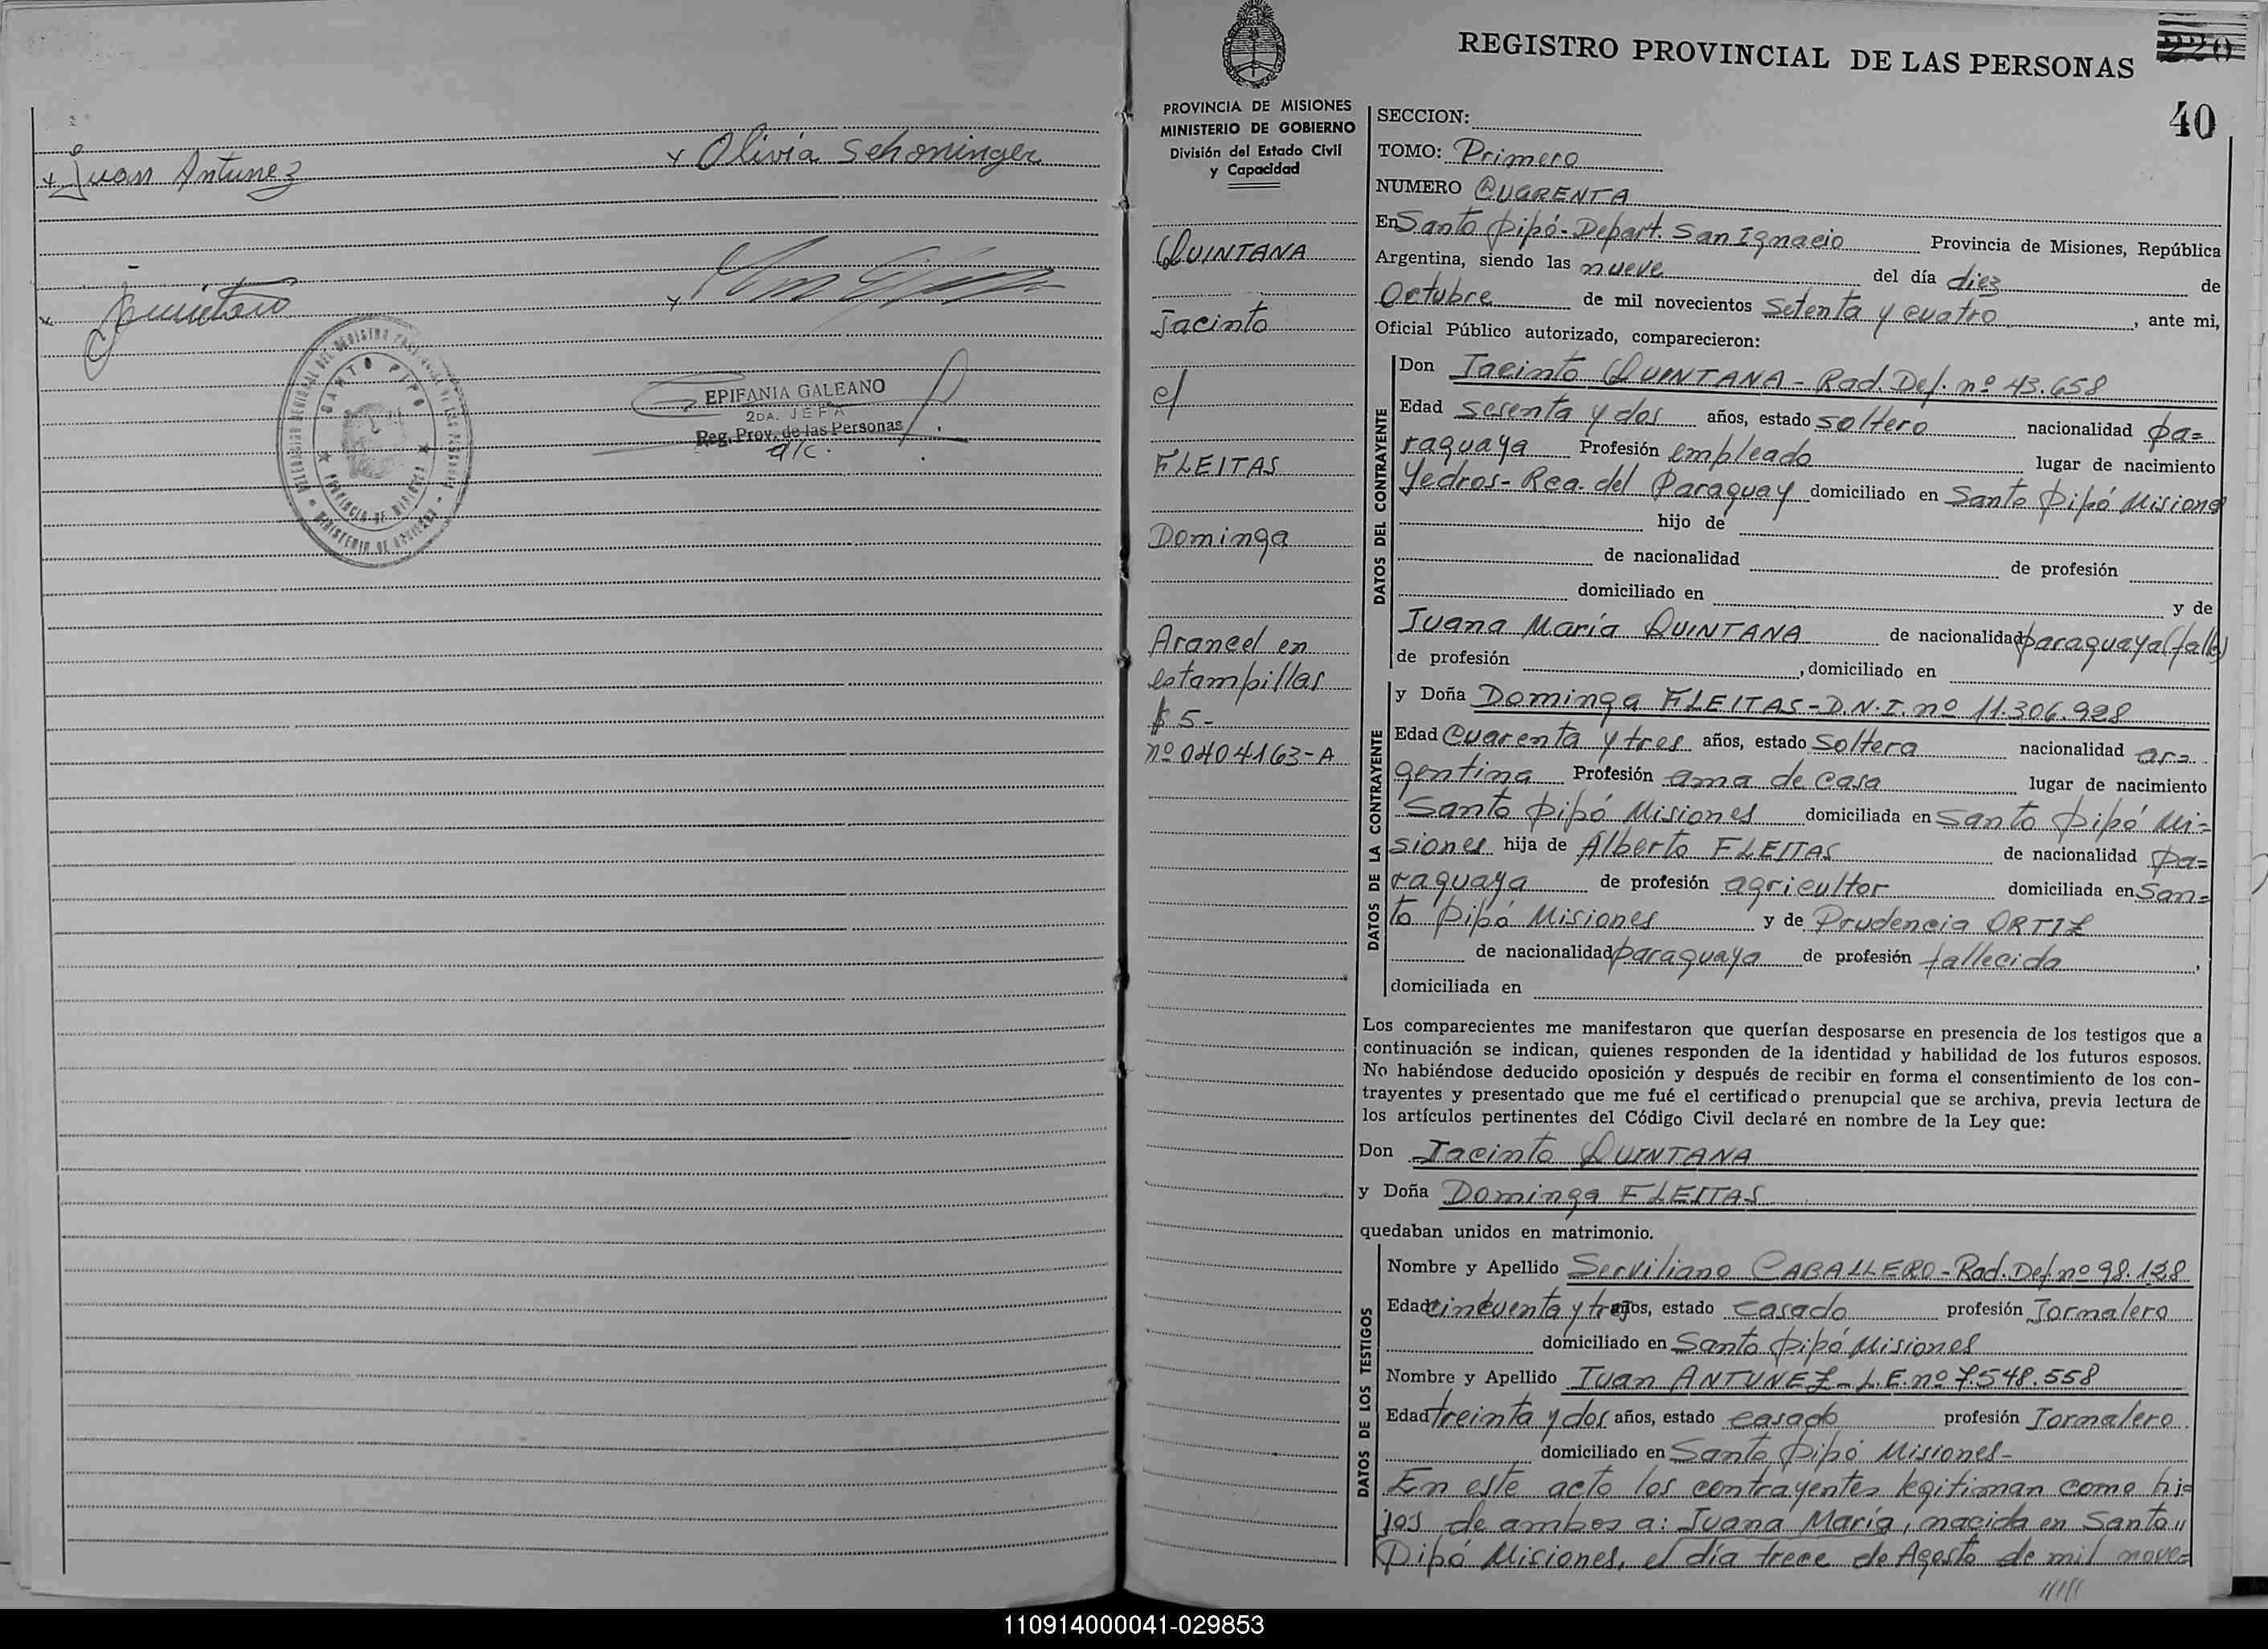 Juan Antunez
Olivia Schoninger
EPIFANIA GALEANO
2DA. JEFA
Reg. Prov. de las Personas
a/c.
SANTO PIPO
REGISTRO PROVINCIAL DE LAS PERSONAS
220
40
PROVINCIA DE MISIONES
MINISTERIO DE GOBIERNO
División del Estado Civil
y Capacidad
QUINTANA
Jacinto
c/
FLEITAS
Dominga
Arancel en
estampillas
$ 5-
nº 0404163-A
SECCION:
TOMO: Primero
NUMERO CUARENTA
En Santo Pipó-Depart. San Ignacio Provincia de Misiones, República
Argentina, siendo las nueve del día diez de
Octubre de mil novecientos setenta y cuatro, ante mi,
Oficial Público autorizado, comparecieron:
DATOS DEL CONTRAYENTE
Don Jacinto QUINTANA - Rad. Def. nº 43.658
Edad sesenta y dos años, estado soltero nacionalidad pa=
raguaya Profesión empleado lugar de nacimiento
Yedros - Rca. del Paraguay domiciliado en Santo Pipó Misiones
hijo de
de nacionalidad de profesión
domiciliado en y de
Juana María QUINTANA de nacionalidad paraguaya (falle)
de profesión , domiciliado en
DATOS DE LA CONTRAYENTE
y Doña Dominga FLEITAS - D.N.I. nº 11.306.928
Edad Cuarenta y tres años, estado soltera nacionalidad ar=
gentina Profesión ama de casa lugar de nacimiento
Santo Pipó Misiones domiciliada en Santo Pipó Mi=
siones hija de Alberto FLEITAS de nacionalidad pa=
raguaya de profesión agricultor domiciliada en San=
to Pipó Misiones y de Prudencia ORTIZ
de nacionalidad paraguaya de profesión fallecida,
domiciliada en
Los comparecientes me manifestaron que querían desposarse en presencia de los testigos que a
continuación se indican, quienes responden de la identidad y habilidad de los futuros esposos.
No habiéndose deducido oposición y después de recibir en forma el consentimiento de los con-
trayentes y presentado que me fué el certificado prenupcial que se archiva, previa lectura de
los artículos pertinentes del Código Civil declaré en nombre de la Ley que:
Don Jacinto QUINTANA
y Doña Dominga FLEITAS
quedaban unidos en matrimonio.
DATOS DE LOS TESTIGOS
Nombre y Apellido Serviliano CABALLERO - Rad. Def. nº 98.138
Edad cincuenta y tres años, estado casado profesión Jornalero
domiciliado en Santo Pipó Misiones
Nombre y Apellido Juan ANTUNEZ - L.E. nº 7.548.558
Edad treinta y dos años, estado casado profesión Jornalero
domiciliado en Santo Pipó Misiones-
En este acto los contrayentes legitiman como hi=
jos de ambos a: Juana María, nacida en Santo
Pipó Misiones, el día trece de Agosto de mil nove=
110914000041-029853